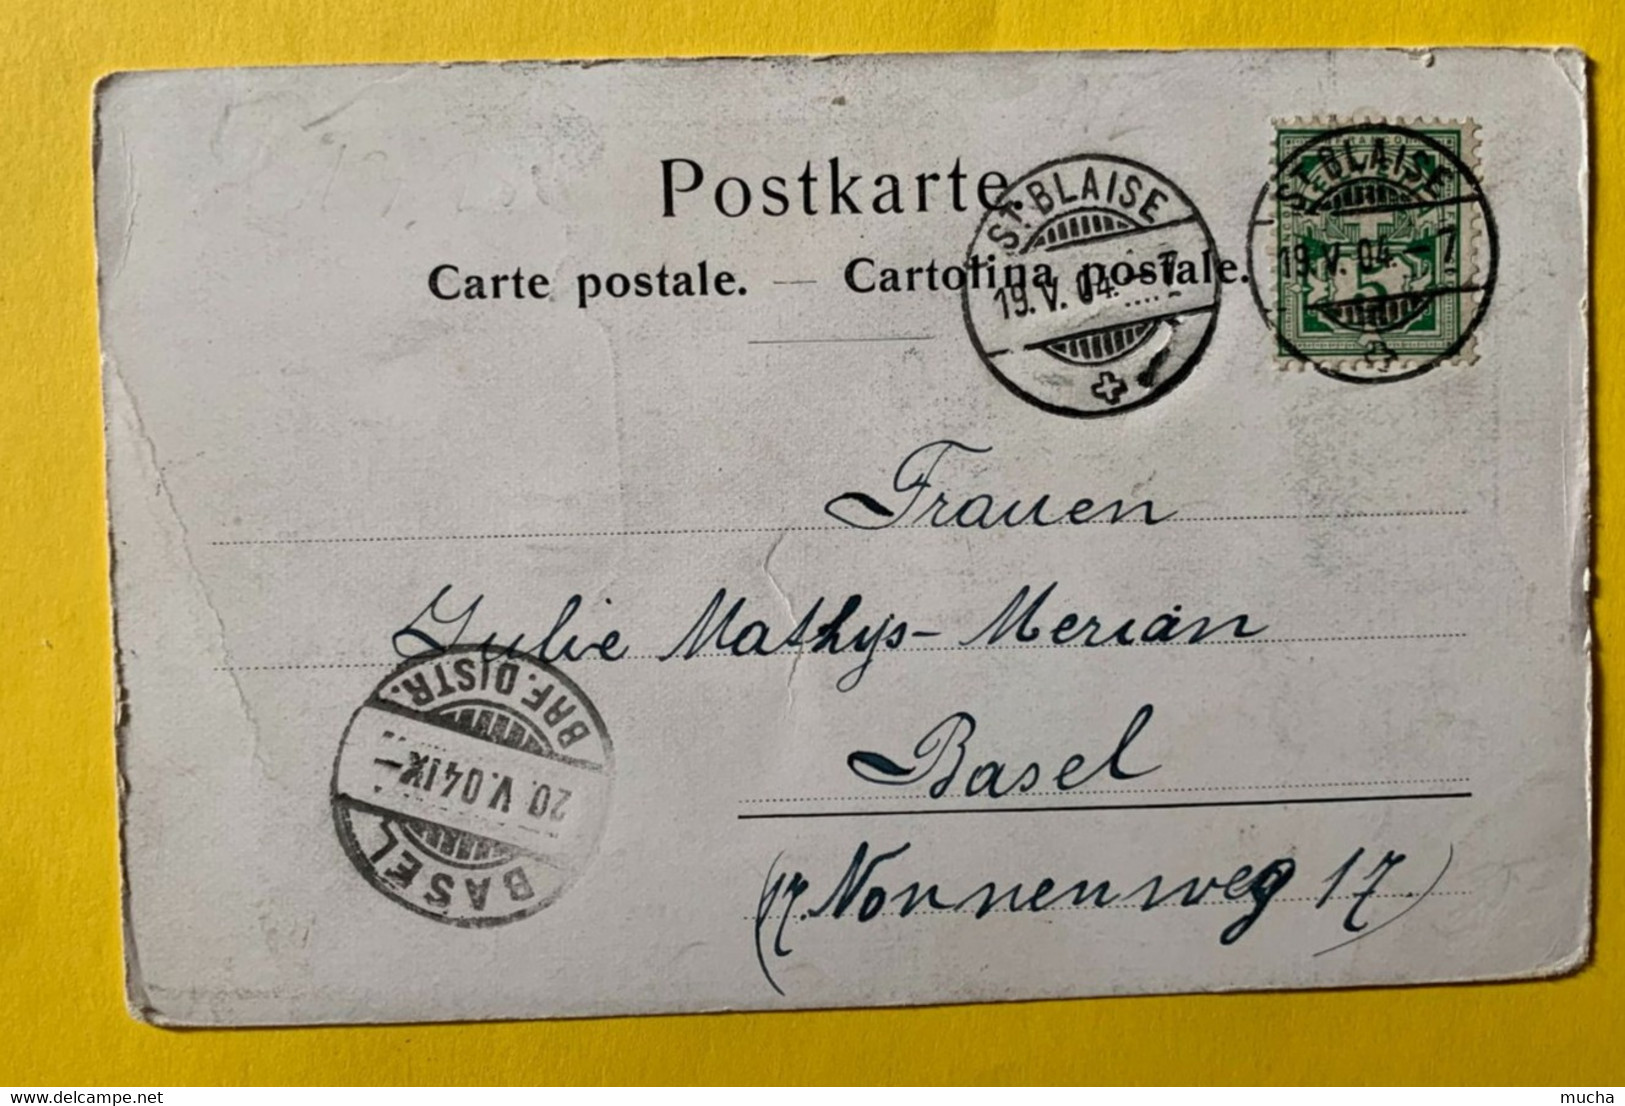 Postkarte.
Carte postale. — Cartolina postale.
ST. BLAISE
19. V. 04. – 7
ST. BLAISE
19. V. 04. – 7
5
Frauen
Julie Mathys-Merian
Basel
(17. Nonnenweg 17)
BRF. DISTR.
20. V. 04 IX –
BASEL
delcampe.net
mucha